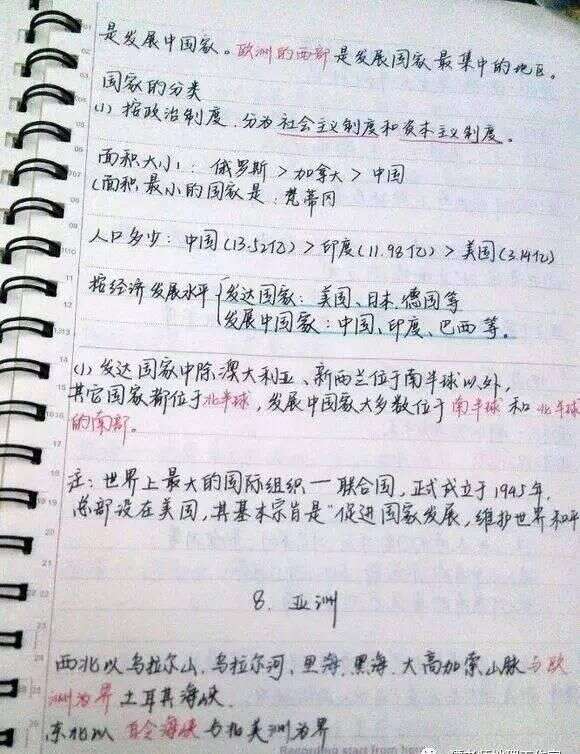 是发展中国家。欧洲的西部是发展国家最集中的地区。
国家的分类
(1) 按政治制度,分为社会主义制度和资本主义制度。
面积大小: 俄罗斯 > 加拿大 > 中国
(面积最小的国家是:梵蒂冈
人口多少: 中国(13.52亿) > 印度(11.98亿) > 美国(3.14亿)
按经济发展水平 { 发达国家: 美国、日本、德国等
发展中国家: 中国、印度、巴西等。
(1) 发达国家中除澳大利亚、新西兰位于南半球以外,
其它国家都位于北半球,发展中国家大多数位于南半球和北半球
的南部。
注: 世界上最大的国际组织—联合国,正式成立于1945年,
总部设在美国,其基本宗旨是"促进国家发展,维护世界和平
8. 亚洲
西北以乌拉尔山、乌拉尔河、里海、黑海、大高加索山脉与欧
洲为界 土耳其海峡
东北以 白令海峡 与北美洲为界
Recording start from here